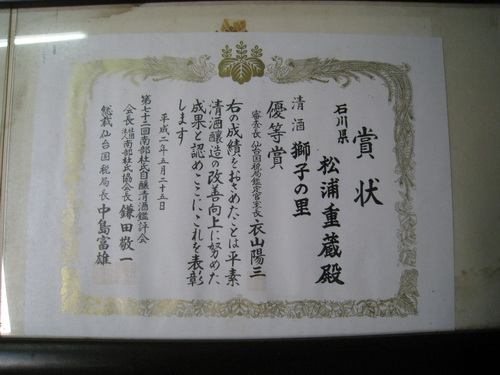 賞状
石川県
松浦重蔵殿
清酒 獅子の里
優等賞
審査長 仙台国税局鑑定官室長 衣山陽三
右の成績をおさめたことは平素
清酒醸造の改善向上に努めた
成果と認めここにこれを表彰
します
平成二年五月二十五日
第七十二回南部杜氏自醸清酒鑑評会
会長 南部杜氏協会長 鎌田敬一
総裁 仙台国税局長 中島富雄